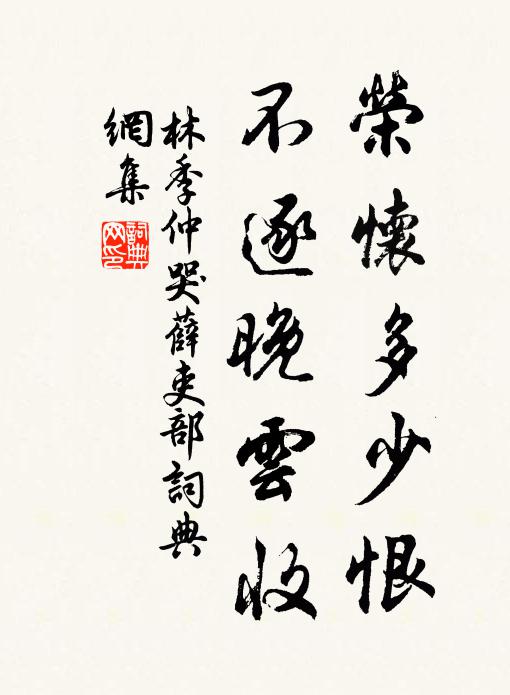 縈懷多少恨
不逐晚雲收
林季仲哭薛吏部詞典
網集
詞典
网印